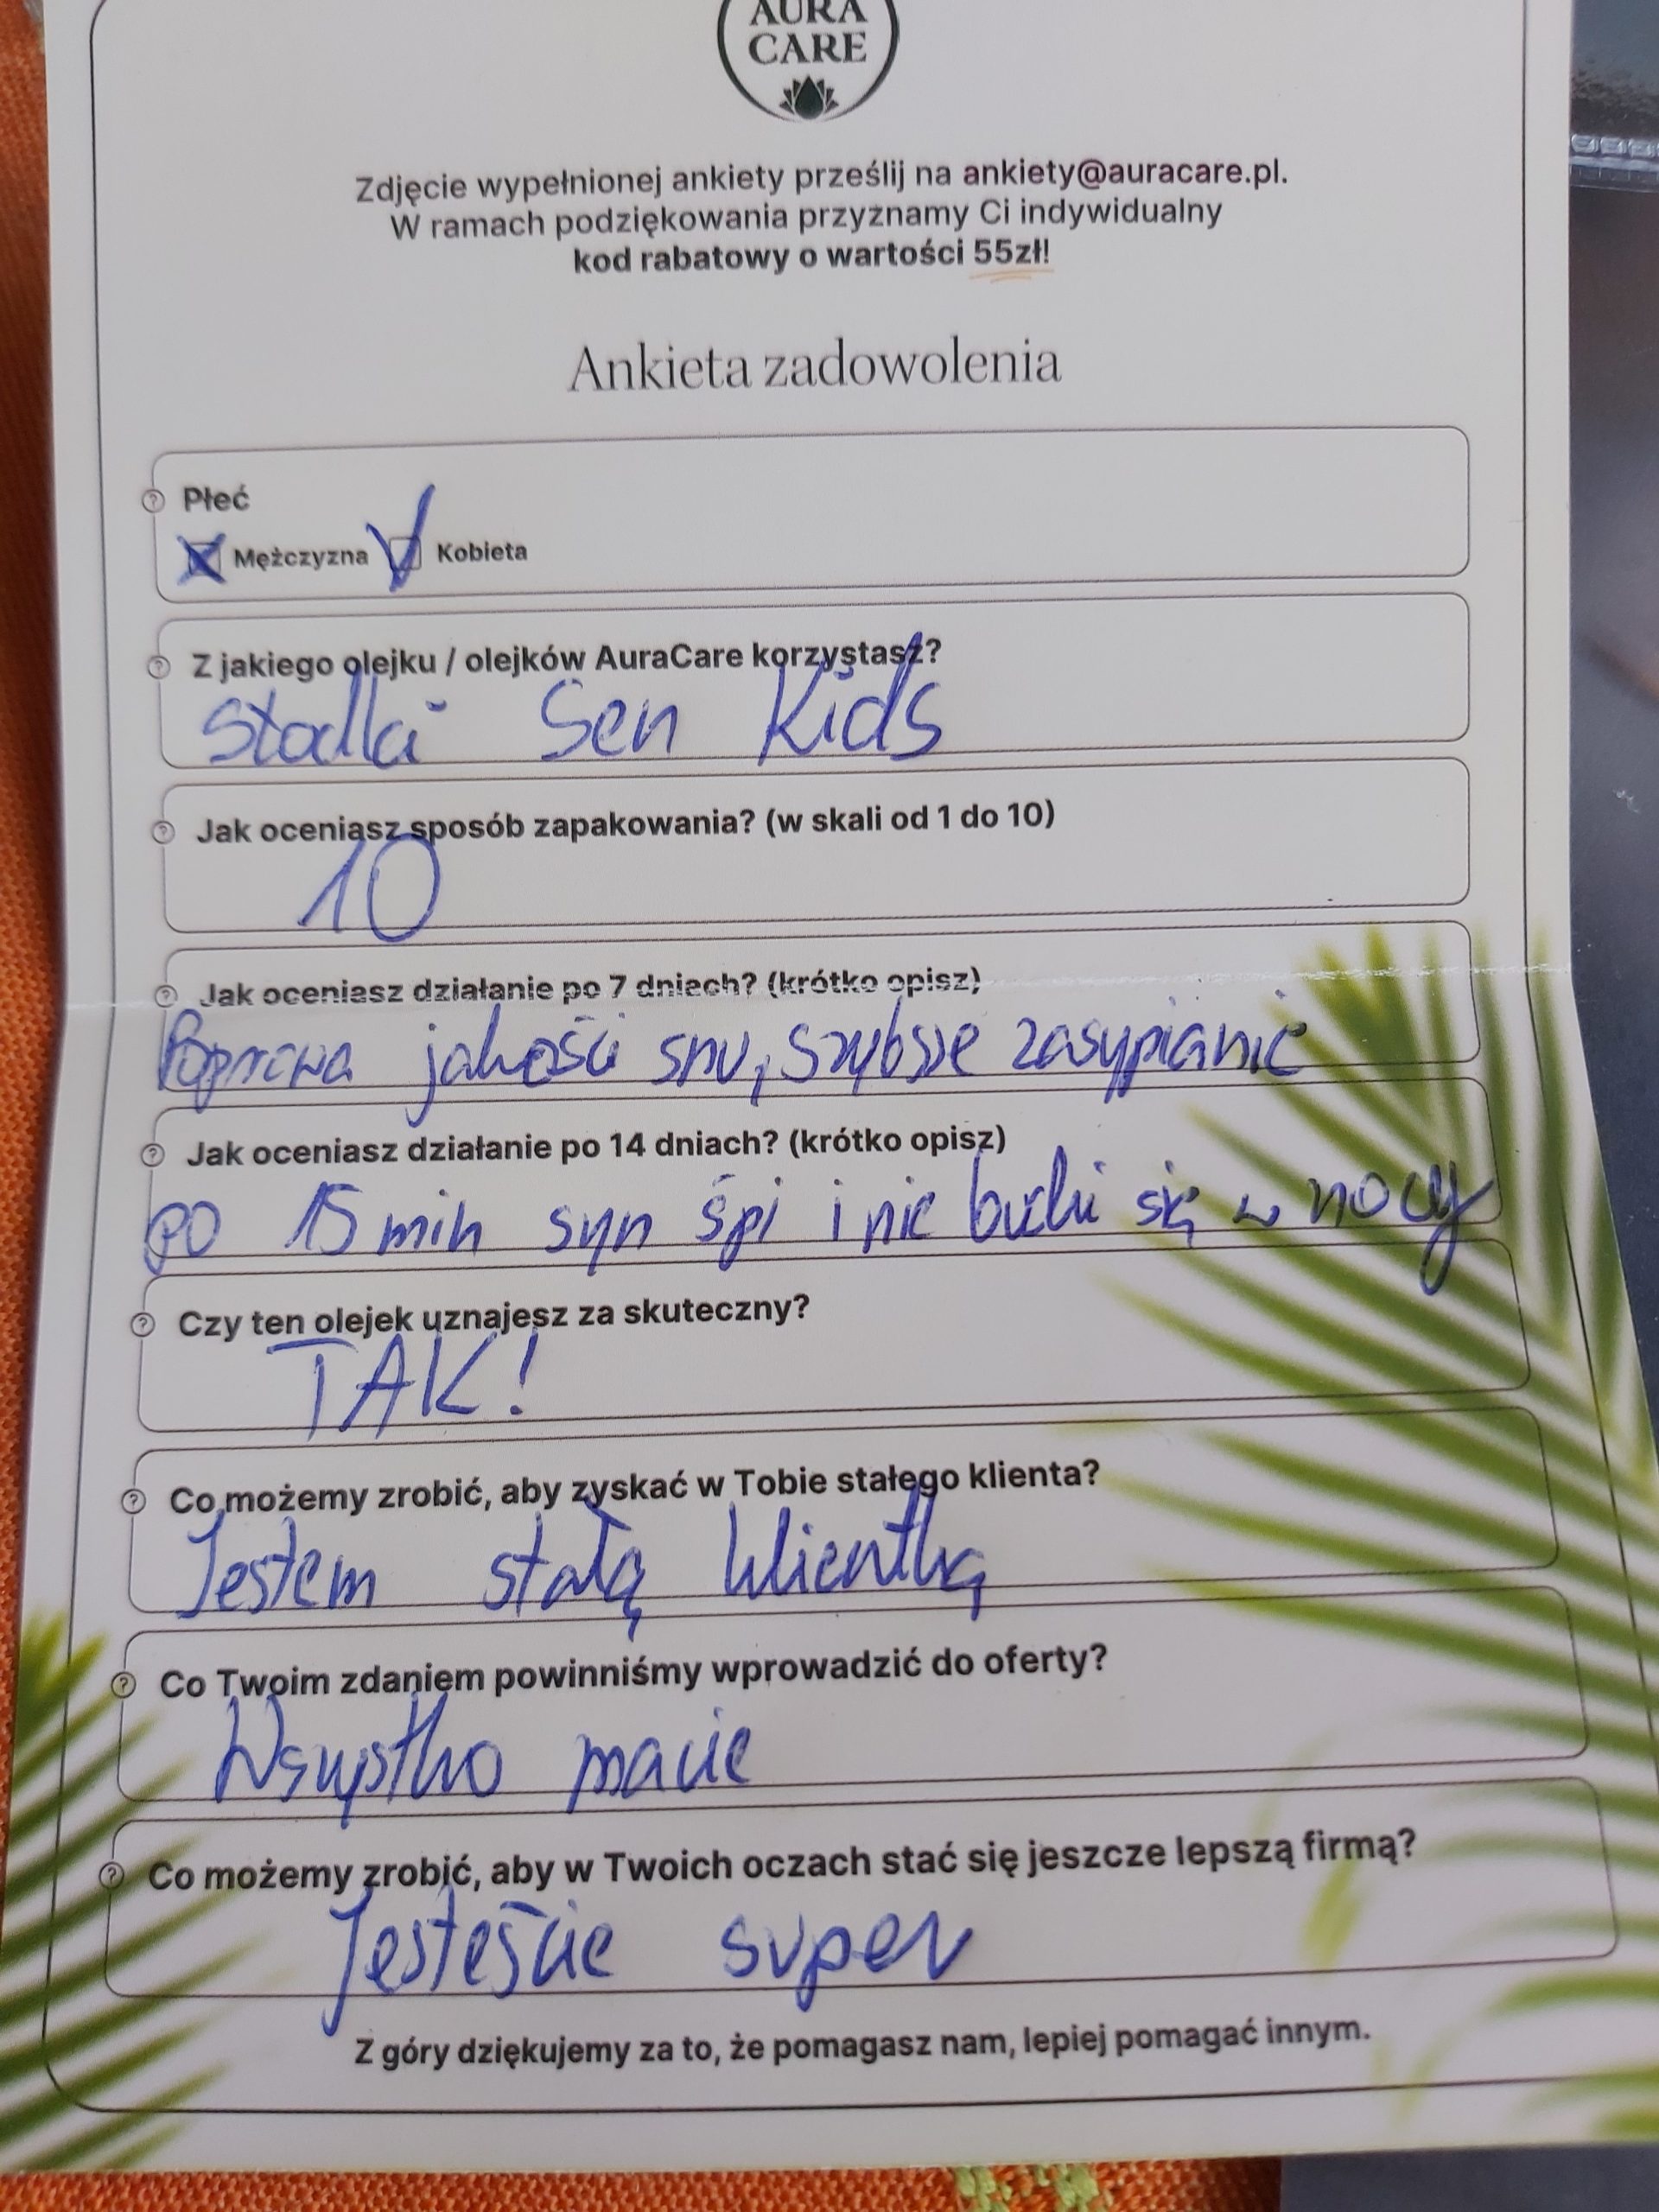 AURA
CARE
Zdjęcie wypełnionej ankiety prześlij na ankiety@auracare.pl.
W ramach podziękowania przyznamy Ci indywidualny
kod rabatowy o wartości 55zł!
Ankieta zadowolenia
Płeć
Mężczyzna Kobieta
Z jakiego olejku / olejków AuraCare korzystasz?
Słodki Sen Kids
Jak oceniasz sposób zapakowania? (w skali od 1 do 10)
10
Jak oceniasz działanie po 7 dniach? (krótko opisz)
Poprawa jakości snu, szybsze zasypianie
Jak oceniasz działanie po 14 dniach? (krótko opisz)
po 15 min syn śpi i nie budzi się w nocy
Czy ten olejek uznajesz za skuteczny?
TAK!
Co możemy zrobić, aby zyskać w Tobie stałego klienta?
Jestem stałą klientką
Co Twoim zdaniem powinniśmy wprowadzić do oferty?
Wszystko macie
Co możemy zrobić, aby w Twoich oczach stać się jeszcze lepszą firmą?
Jesteście super
Z góry dziękujemy za to, że pomagasz nam, lepiej pomagać innym.